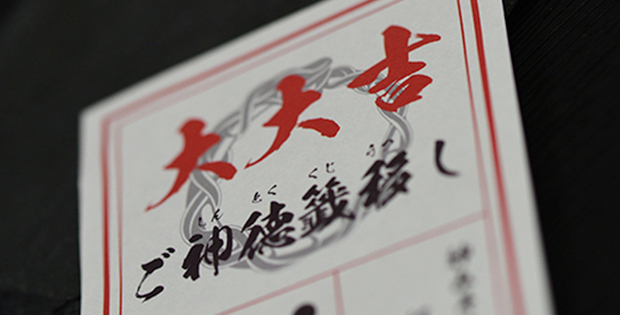 大大吉
しん とく くじ うつ
ご神徳籤移し